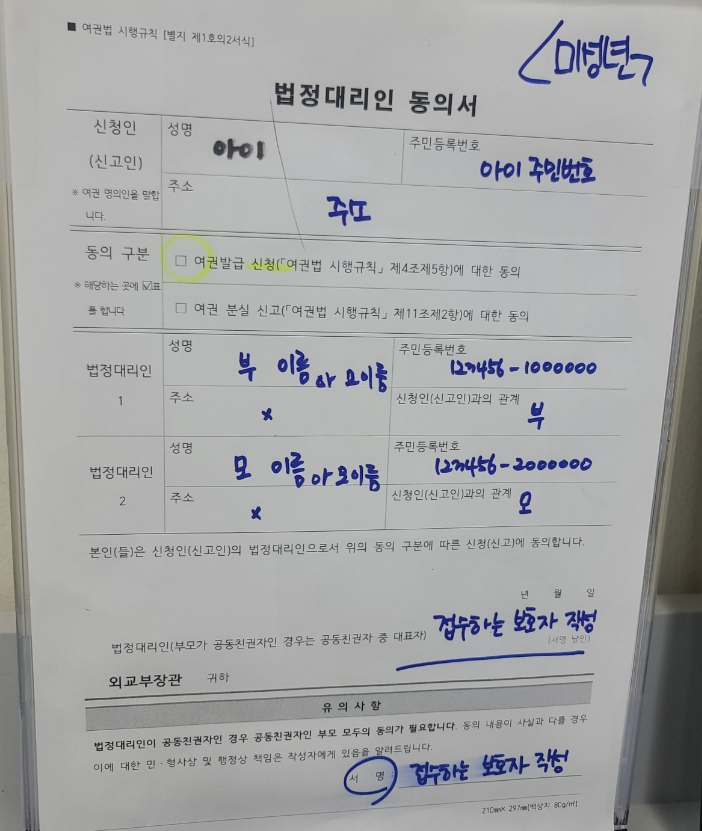 ■ 여권법 시행규칙 [별지 제1호의2서식]
<미성년
법정대리인 동의서
신청인
(신고인)
※ 여권 명의인을 말합
니다.
성명
아이
주민등록번호
아이 주민번호
주소
주소
동의 구분
※ 해당하는 곳에 ☑표
를 합니다
□ 여권발급 신청(「여권법 시행규칙」 제4조제5항)에 대한 동의
□ 여권 분실 신고(「여권법 시행규칙」 제11조제2항)에 대한 동의
법정대리인
1
성명
부 이름
주민등록번호
123456-1000000
주소
x
신청인(신고인)과의 관계
부
법정대리인
2
성명
모 이름
주민등록번호
123456-2000000
주소
x
신청인(신고인)과의 관계
모
본인(들)은 신청인(신고인)의 법정대리인으로서 위의 동의 구분에 따른 신청(신고)에 동의합니다.
년 월 일
법정대리인(부모가 공동친권자인 경우는 공동친권자 중 대표자)
접수하는 보호자 작성
외교부장관 귀하
유 의 사 항
법정대리인이 공동친권자인 경우 공동친권자인 부모 모두의 동의가 필요합니다. 동의 내용이 사실과 다를 경우
이에 대한 민·형사상 및 행정상 책임은 작성자에게 있음을 알려드립니다.
서 명 : 접수하는 보호자 작성
210mm× 297mm[백상지 80g/㎡]